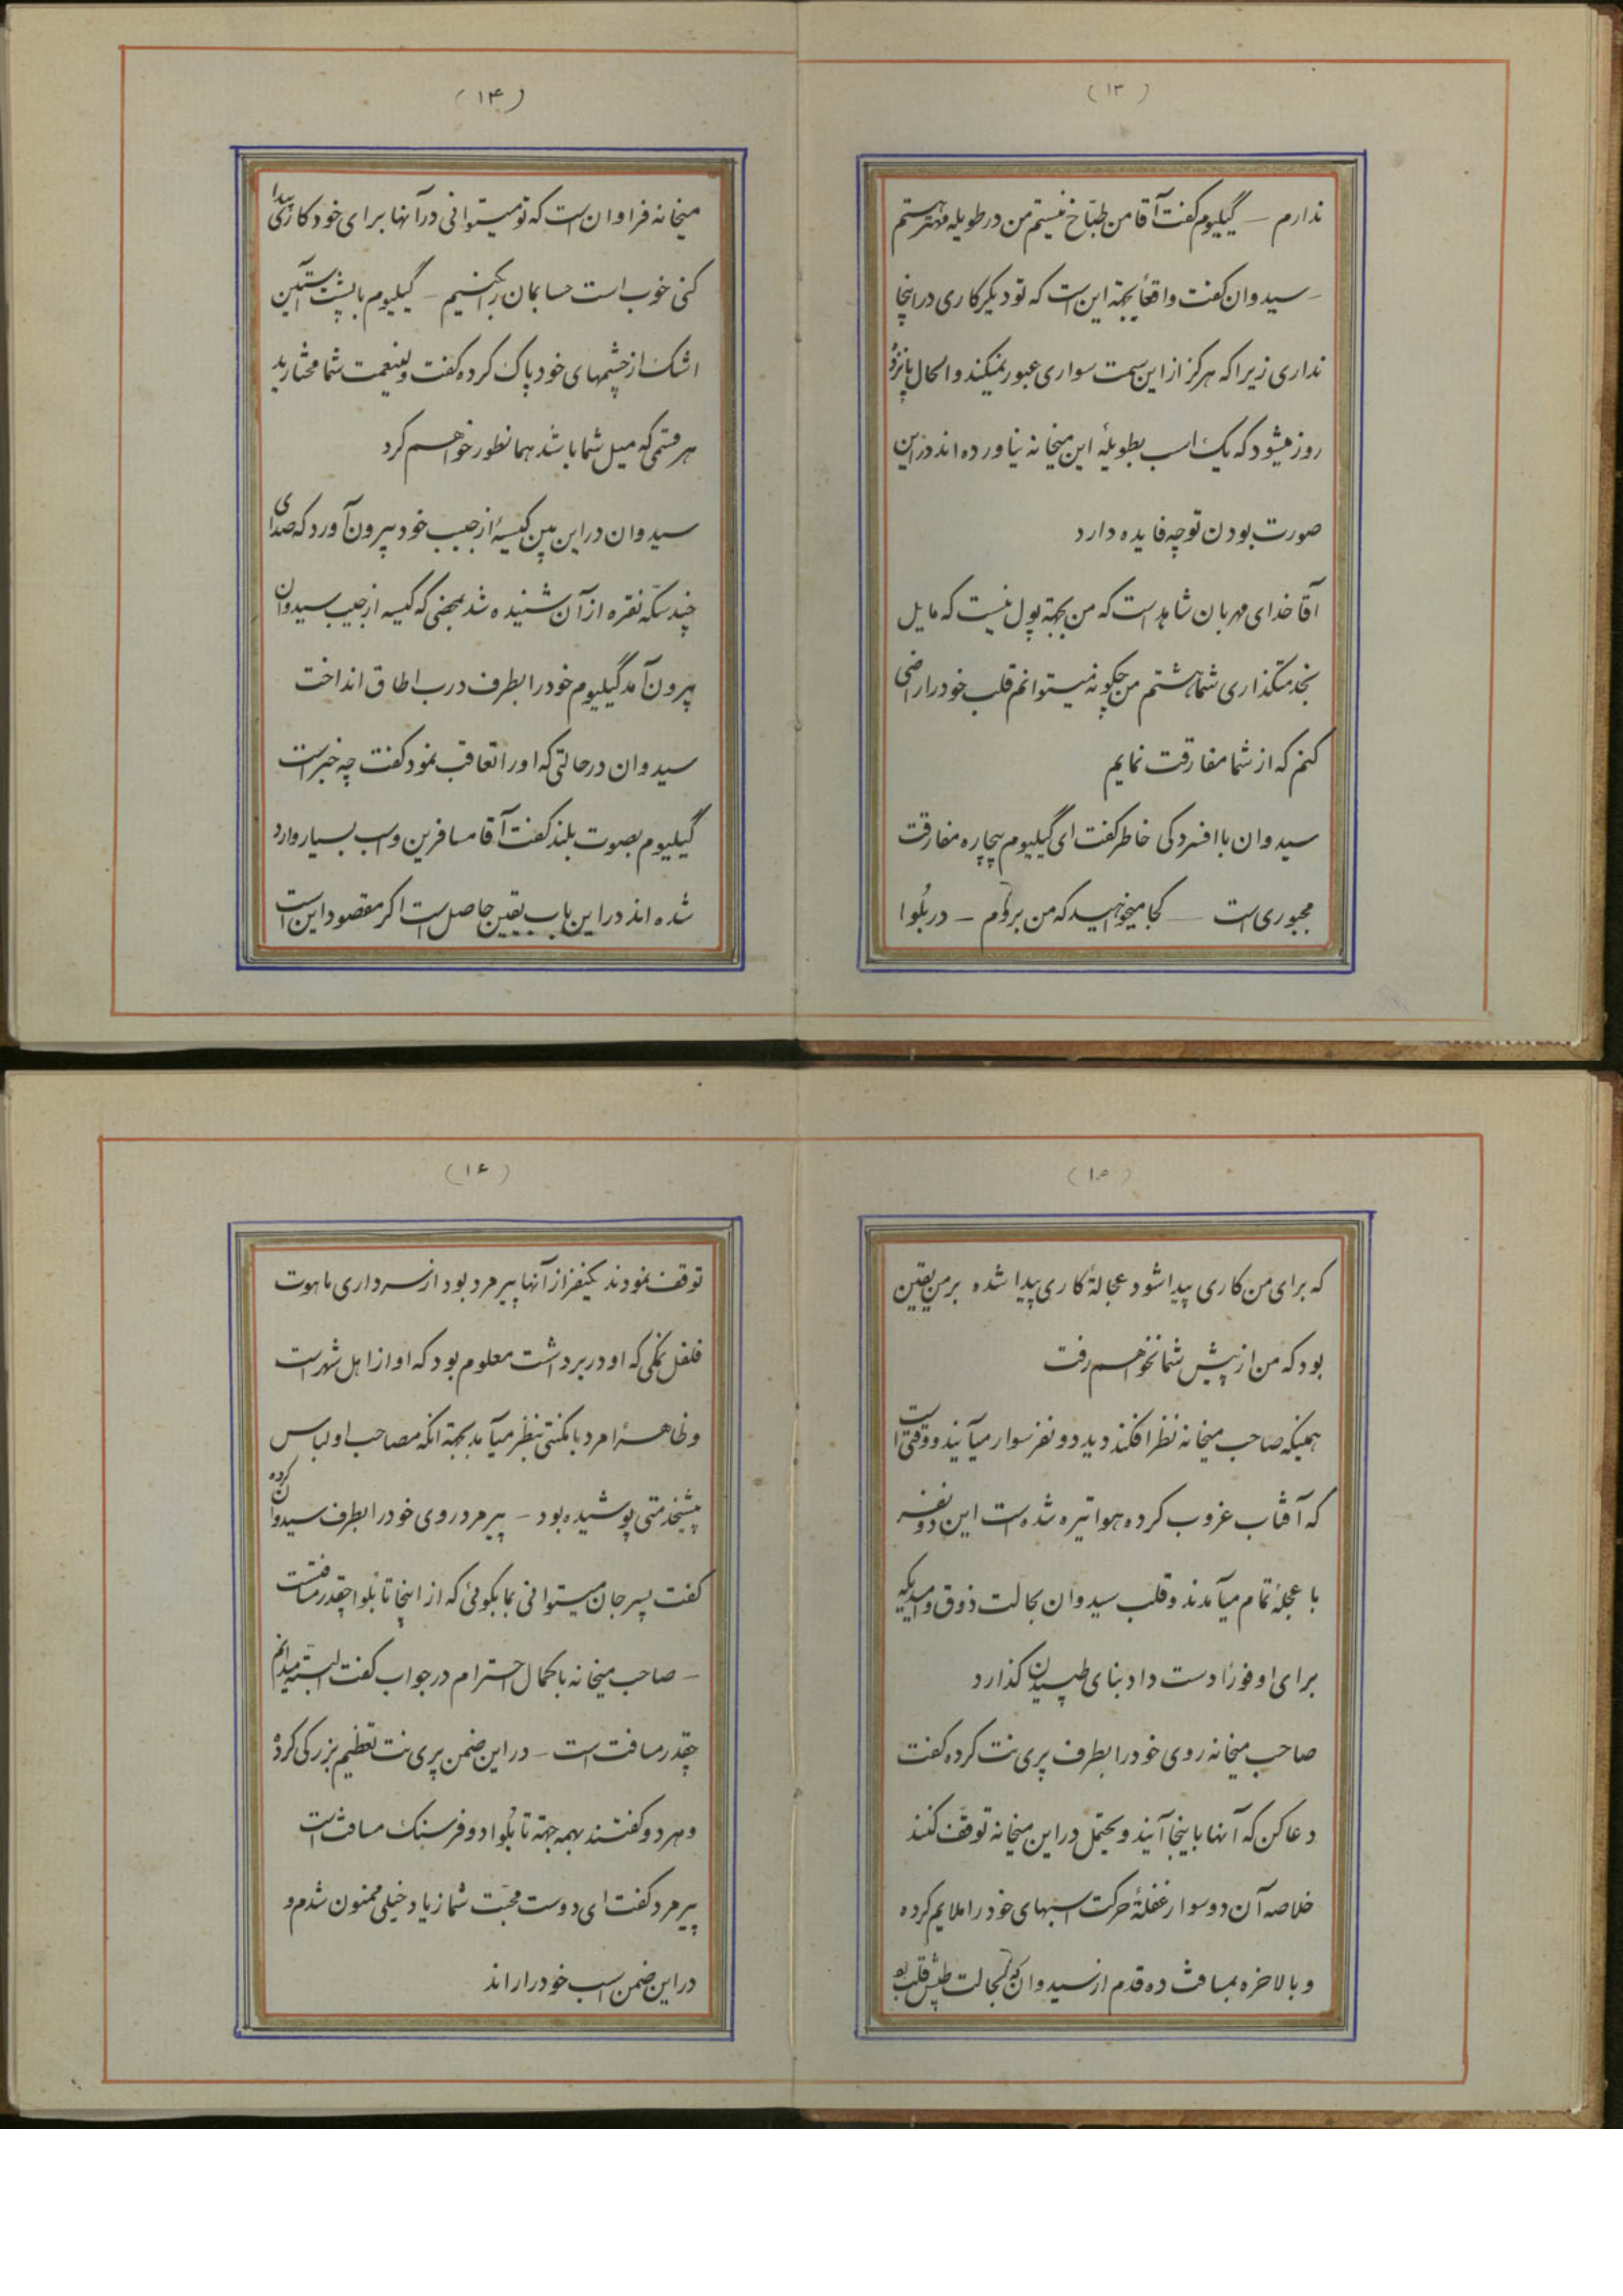 (۱۳)
ندارم – گیلیوم گفت آقا من طبّاخ نیستم من در طویله مهتر هستم
– سیدوان گفت واقعاً بجهة این است که تو دیگر کاری در اینجا
نداری زیرا که هرگز از این سمت سواری عبور نمیکند و الحال پانزده
روز میشود که یک اسب بطویلهٔ این میخانه نیاورده‌اند در این
صورت بودن تو چه فایده دارد
آقا خدای مهربان شاهد است که من بجهة پول نیست که مایل
بخدمتگذاری شما هستم من چگونه میتوانم قلب خود را راضی
کنم که از شما مفارقت نمایم
سیدوان با افسردگی خاطر گفت ای گیلیوم بیچاره مفارقت
مجبوری است – کجا میخواهید که من بروم – در بلوا
(۱۴)
میخانه فراوان است که تو میتوانی در آنها برای خود کاری پیدا
کنی خوب است حسابمان را بکنیم – گیلیوم با پشت آستین
اشک از چشمهای خود پاک کرده گفت ولینعمت شما مختارید
هر قسمی که میل شما باشد همانطور خواهم کرد
سیدوان در این بین کیسهٔ از جیب خود بیرون آورد که صدای
چند سکّه نقره از آن شنیده شد بمحضی که کیسه از جیب سیدوان
بیرون آمد گیلیوم خود را بطرف درب اطاق انداخت
سیدوان در حالتی که او را تعاقب نمود گفت چه خبر است
گیلیوم بصوت بلند گفت آقا مسافرین و اسب بسیار وارد
شده‌اند در این باب یقین حاصل است اگر مقصود این است
(۱۵)
که برای من کاری پیدا شود عجالةً کاری پیدا شده بر من یقین
بود که من از پیش شما نخواهم رفت
همینکه صاحب میخانه نظر افکند دید دو نفر سوار میآیند و وقتی است
که آفتاب غروب کرده هوا تیره شده است این دو نفر
با عجلهٔ تمام میآمدند و قلب سیدوان بحالت ذوق و امیدیکه
برای او فوراً دست داد بنای طپیدن گذارد
صاحب میخانه روی خود را بطرف پری نت کرده گفت
دعا کن که آنها باینجا آیند و یحتمل در این میخانه توقّف کنند
خلاصه آن دو سوار غفلةً حرکت اسبهای خود را ملایم کرده
و بالاخره بمسافت ده قدم از سیدوان که بحالت طپش قلب بود
(۱۶)
توقف نمودند یکنفر از آنها پیرمرد بود از سرداری ماهوت
فلفل نمکی که او در بر داشت معلوم بود که او از اهل شهر است
و ظاهراً مرد با مکنتی بنظر میآمد بجهة آنکه مصاحب او لباس
پیشخدمتی پوشیده بود – پیرمرد روی خود را بطرف سیدوان کرده
گفت پسر جان میتوانی بما بگوئی که از اینجا تا بلوا چقدر مسافتست
– صاحب میخانه با کمال احترام در جواب گفت البتّه میدانم
چقدر مسافت است – در این ضمن پری نت تعظیم بزرگی کرده
و هر دو گفتند بهمه جهة تا بلوا دو فرسنگ مسافت است
پیرمرد گفت ای دوست محبّت شما زیاد خیلی ممنون شدم و
در این ضمن اسب خود را راند